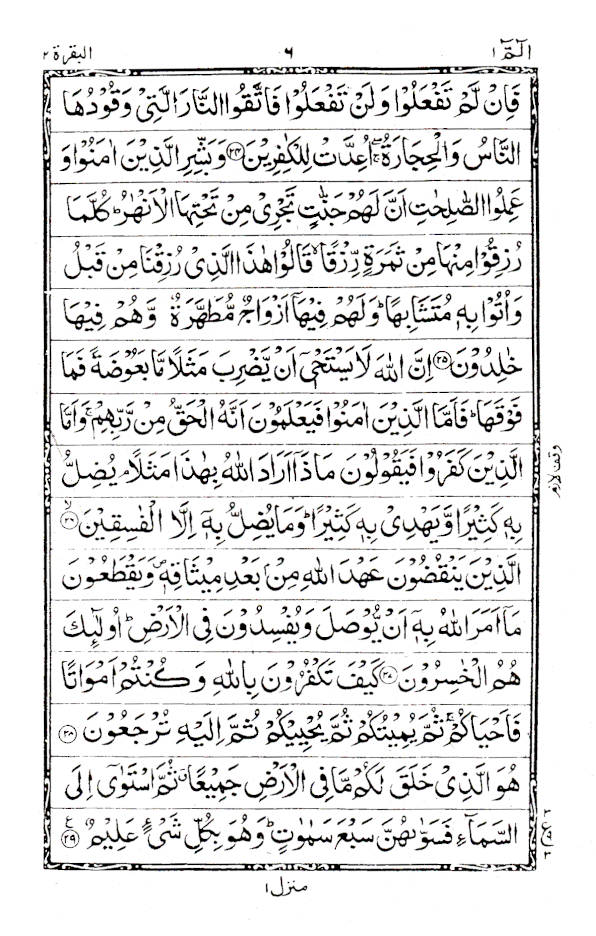 الٓمّٓ ١ ٦ البقرة ٢
فَاِنْ لَّمْ تَفْعَلُوْا وَلَنْ تَفْعَلُوْا فَاتَّقُوا النَّارَ الَّتِیْ وَقُوْدُهَا
النَّاسُ وَالْحِجَارَةُ ۖۚ اُعِدَّتْ لِلْكٰفِرِیْنَ ﴿۲۴﴾ وَبَشِّرِ الَّذِیْنَ اٰمَنُوْا وَ
عَمِلُوا الصّٰلِحٰتِ اَنَّ لَهُمْ جَنّٰتٍ تَجْرِیْ مِنْ تَحْتِهَا الْاَنْهٰرُ ؕ كُلَّمَا
رُزِقُوْا مِنْهَا مِنْ ثَمَرَةٍ رِّزْقًا ۙ قَالُوْا هٰذَا الَّذِیْ رُزِقْنَا مِنْ قَبْلُ
وَاُتُوْا بِهٖ مُتَشَابِهًا ؕ وَلَهُمْ فِیْهَاۤ اَزْوَاجٌ مُّطَهَّرَةٌ وَّهُمْ فِیْهَا
خٰلِدُوْنَ ﴿۲۵﴾ اِنَّ اللّٰهَ لَا یَسْتَحْیٖۤ اَنْ یَّضْرِبَ مَثَلًا مَّا بَعُوْضَةً فَمَا
فَوْقَهَا ؕ فَاَمَّا الَّذِیْنَ اٰمَنُوْا فَیَعْلَمُوْنَ اَنَّهُ الْحَقُّ مِنْ رَّبِّهِمْ ۚ وَاَمَّا
الَّذِیْنَ كَفَرُوْا فَیَقُوْلُوْنَ مَاذَاۤ اَرَادَ اللّٰهُ بِهٰذَا مَثَلًا ۘ یُضِلُّ
وقف لازم
بِهٖ كَثِیْرًا وَّیَهْدِیْ بِهٖ كَثِیْرًا ؕ وَمَا یُضِلُّ بِهٖۤ اِلَّا الْفٰسِقِیْنَ ﴿۲۶﴾ ۙ
الَّذِیْنَ یَنْقُضُوْنَ عَهْدَ اللّٰهِ مِنْۢ بَعْدِ مِیْثَاقِهٖ ۪ وَیَقْطَعُوْنَ
مَاۤ اَمَرَ اللّٰهُ بِهٖۤ اَنْ یُّوْصَلَ وَیُفْسِدُوْنَ فِی الْاَرْضِ ؕ اُولٰٓىِٕكَ
هُمُ الْخٰسِرُوْنَ ﴿۲۷﴾ كَیْفَ تَكْفُرُوْنَ بِاللّٰهِ وَكُنْتُمْ اَمْوَاتًا
فَاَحْیَاكُمْ ۚ ثُمَّ یُمِیْتُكُمْ ثُمَّ یُحْیِیْكُمْ ثُمَّ اِلَیْهِ تُرْجَعُوْنَ ﴿۲۸﴾
هُوَ الَّذِیْ خَلَقَ لَكُمْ مَّا فِی الْاَرْضِ جَمِیْعًا ۗ ثُمَّ اسْتَوٰۤی اِلَی
السَّمَآءِ فَسَوّٰىهُنَّ سَبْعَ سَمٰوٰتٍ ؕ وَهُوَ بِكُلِّ شَیْءٍ عَلِیْمٌ ﴿۲۹﴾ ع
٣ ع ٩ ٣
منزل ١